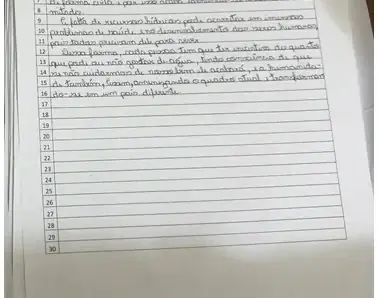 7 de forma civil, por isso
8 mitado.
9 A falta de recursos hídricos pode acarretar em imensos
10 problemas de saúde e no desenvolvimento dos seres humanos,
11 pois todos precisam dele para viver.
12 Dessa forma, cada pessoa tem que ter incentivo do quanto
13 que pode ou não gastar de água, tendo consciência de que
14 se não cuidarmos de nosso bem ele acabará, e a humanida-
15 de também, assim, amenizando o quadro atual e transforman
16 do-se em um país diferente.
17
18
19
20
21
22
23
24
25
26
27
28
29
30